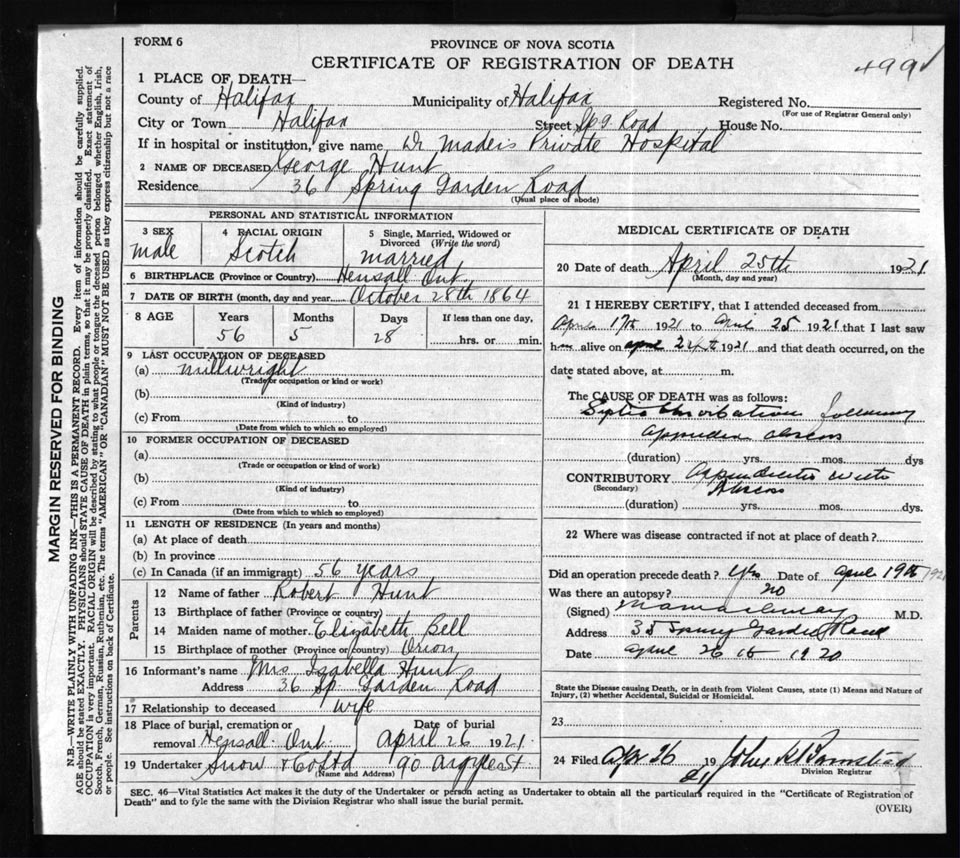 FORM 6
PROVINCE OF NOVA SCOTIA
CERTIFICATE OF REGISTRATION OF DEATH
4991
1 PLACE OF DEATH—
County of Halifax Municipality of Halifax Registered No.
(For use of Registrar General only)
City or Town Halifax Street Spg. Road House No.
If in hospital or institution, give name Dr Maders Private Hospital
2 NAME OF DECEASED George Hunt
Residence 36 Spring Garden Road
(Usual place of abode)
PERSONAL AND STATISTICAL INFORMATION
3 SEX 4 RACIAL ORIGIN 5 Single, Married, Widowed or Divorced (Write the word)
male Scotch married
6 BIRTHPLACE (Province or Country) Hensall Ont.
7 DATE OF BIRTH (month, day and year) October 28th 1864
8 AGE Years Months Days If less than one day,
56 5 28 hrs. or min.
9 LAST OCCUPATION OF DECEASED
(a) millwright
(Trade or occupation or kind or work)
(b)
(Kind of industry)
(c) From to
(Date from which to which so employed)
10 FORMER OCCUPATION OF DECEASED
(a)
(Trade or occupation or kind of work)
(b)
(Kind of industry)
(c) From to
(Date from which to which so employed)
11 LENGTH OF RESIDENCE (In years and months)
(a) At place of death
(b) In province
(c) In Canada (if an immigrant) 56 years
Parents
12 Name of father Robert Hunt
13 Birthplace of father (Province or country)
14 Maiden name of mother Elizabeth Bell
15 Birthplace of mother (Province or country)
16 Informant's name Mrs Isabella Hunt
Address 36 Sp. Garden Road
17 Relationship to deceased wife
18 Place of burial, cremation or removal Hensall Ont. Date of burial April 26 1921
19 Undertaker Snow & Co Ltd 90 Argyle St
(Name and Address)
MEDICAL CERTIFICATE OF DEATH
20 Date of death April 25th 1921
(Month, day and year)
21 I HEREBY CERTIFY, that I attended deceased from
April 17th 1921 to April 25 1921 that I last saw
him alive on april 24th 1921 and that death occurred, on the
date stated above, at m.
The CAUSE OF DEATH was as follows:
Septic following
appendix abscess
(duration) yrs. mos. dys
CONTRIBUTORY Appendicitis with
(Secondary) Abscess
(duration) yrs. mos. dys.
22 Where was disease contracted if not at place of death?
Did an operation precede death? Yes Date of april 19th 1921
Was there an autopsy? no
(Signed) M.D.
Address 35 Spring Garden Road
Date april 26 1920
State the Disease causing Death, or in death from Violent Causes, state (1) Means and Nature of
Injury, (2) whether Accidental, Suicidal or Homicidal.
23
24 Filed Apr 26 1921 John
Division Registrar
SEC. 46—Vital Statistics Act makes it the duty of the Undertaker or person acting as Undertaker to obtain all the particulars required in the "Certificate of Registration of
Death" and to fyle the same with the Division Registrar who shall issue the burial permit.
(OVER)
MARGIN RESERVED FOR BINDING
N.B.—WRITE PLAINLY WITH UNFADING INK—THIS IS A PERMANENT RECORD. Every item of information should be carefully supplied.
AGE should be stated EXACTLY. PHYSICIANS should STATE CAUSE OF DEATH in plain terms, so that it may be properly classified. Exact statement of
OCCUPATION is very important. RACIAL ORIGIN will be described by stating to what people or tongue the deceased person belonged whether English, Irish,
Scotch, French, German, Russian, Ruthenian, etc. The terms "AMERICAN" OR "CANADIAN" MUST NOT BE USED as they express citizenship but not a race
or people. See instructions on back of Certificate.